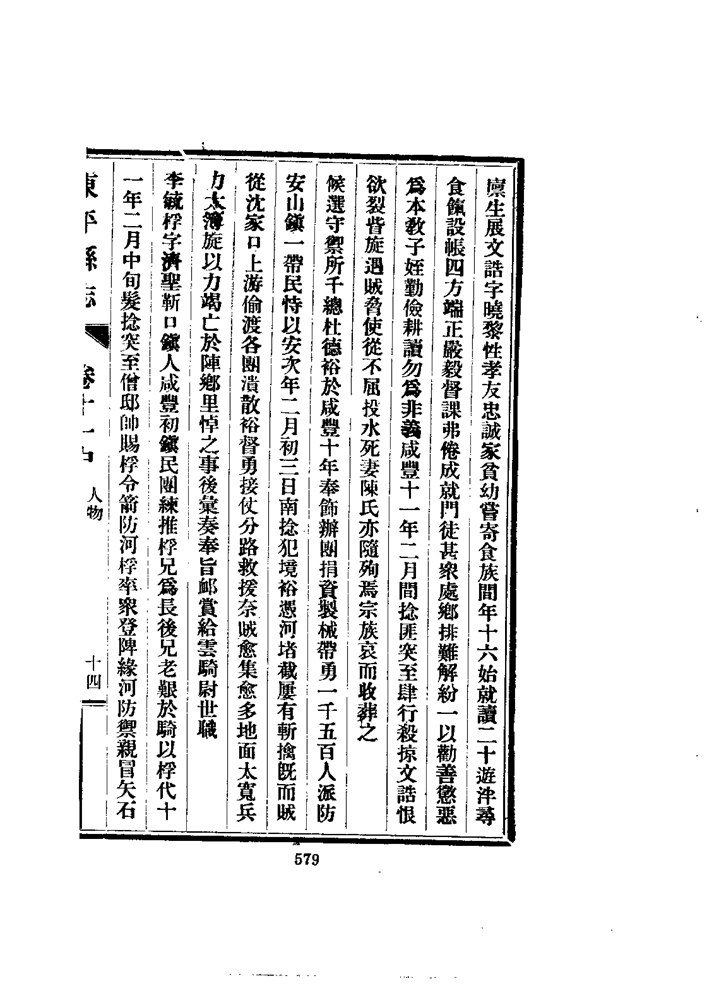 廩生展文誥字曉黎性孝友忠誠家貧幼嘗寄食族間年十六始就讀二十遊泮尋
食餼設帳四方端正嚴毅督課弗倦成就門徒甚衆處鄉排難解紛一以勸善懲惡
爲本教子姪勤儉耕讀勿爲非義咸豐十一年二月間捻匪突至肆行殺掠文誥恨
欲裂眥旋遇賊脅使從不屈投水死妻陳氏亦隨殉焉宗族哀而收葬之
候選守禦所千總杜德裕於咸豐十年奉飾辦團捐資製械帶勇一千五百人派防
安山鎭一帶民恃以安次年二月初三日南捻犯境裕憑河堵截屢有斬擒旣而賊
從沈家口上游偷渡各團潰散裕督勇接仗分路救援奈賊愈集愈多地面太寬兵
力太薄旋以力竭亡於陣鄉里悼之事後彙奏奉旨邮賞給雲騎尉世職
李毓桴字濟聖靳口鎭人咸豐初鎭民團練推桴兄爲長後兄老艱於騎以桴代十
一年二月中旬髮捻突至僧邸帥賜桴令箭防河桴率衆登陴緣河防禦親冒矢石
東平縣志 卷十一 人物 十四
579